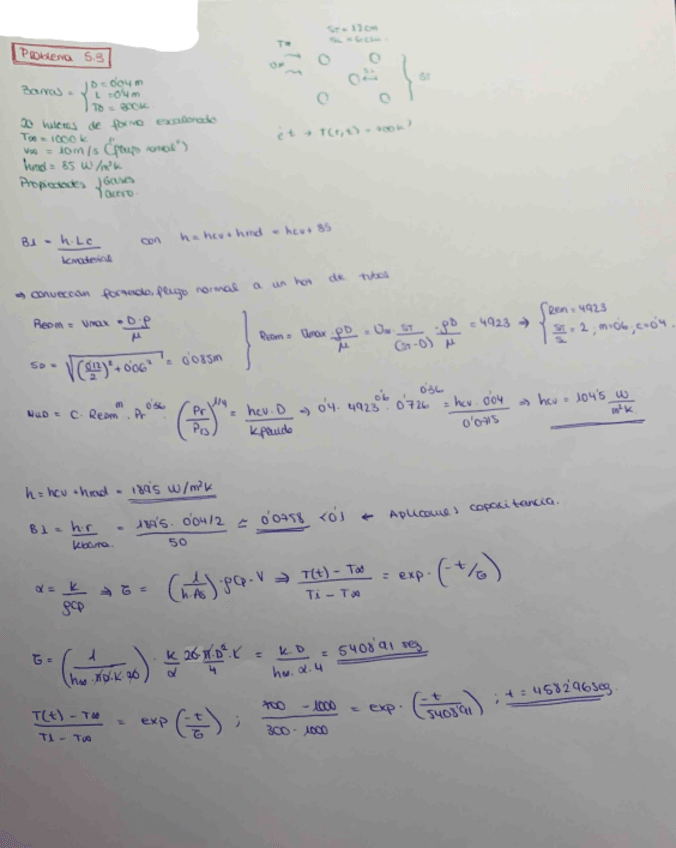 Problema 5.9
Barras = { D = 0'04 m
L = 0'4 m
T0 = 300 K
ST = 12 cm
SL = 6 cm
T∞
U∞
ST
20 hileras de forma escalonada
T∞ = 1000 K
V∞ = 10 m/s ("flujo normal")
hrad = 85 W/m²K
Propiedades { Gases
acero.
¿t → T(r,t) = 700 K?
Bi = h·Lc / kmaterial con h = hcv + hrad = hcv + 85
⇒ convección forzada, flujo normal a un haz de tubos
ReDm = Vmax · D·ρ / μ
SD = √((0'12/2)² + 0'06²) = 0'085m
ReDm = Umax · ρD/μ = U∞ · ST/(ST-D) · ρD/μ = 4923 ⇒ { Rem = 4923
ST/SL = 2, m=0'6, c=0'4.
NuD = C · ReDm^m · Pr^0'36 · (Pr/Prs)^1/4 = hcv·D / kfluido ⇒ 0'4 · 4923^0'6 · 0'726^0'36 = hcv · 0'04 / 0'0715 ⇒ hcv = 104'5 W/m²K
h = hcv + hrad = 189'5 W/m²K
Bi = h·r / kbarra = 189'5 · 0'04/2 / 50 ≅ 0'0758 < 0'1 ← Aplicamos capacitancia.
α = k/ρcp ⇒ τ = (1/h·As) · ρcp · V ⇒ T(t) - T∞ / Ti - T∞ = exp · (-t/τ)
τ = (1 / h∞ · π·D·L·20) · k/α · 20·π·D²·L / 4 = k·D / h∞·α·4 = 5408'91 seg
T(t) - T∞ / Ti - T∞ = exp (-t/τ) ; 700 - 1000 / 300 - 1000 = exp · (-t / 5408'91) ; t = 4582'96 seg.